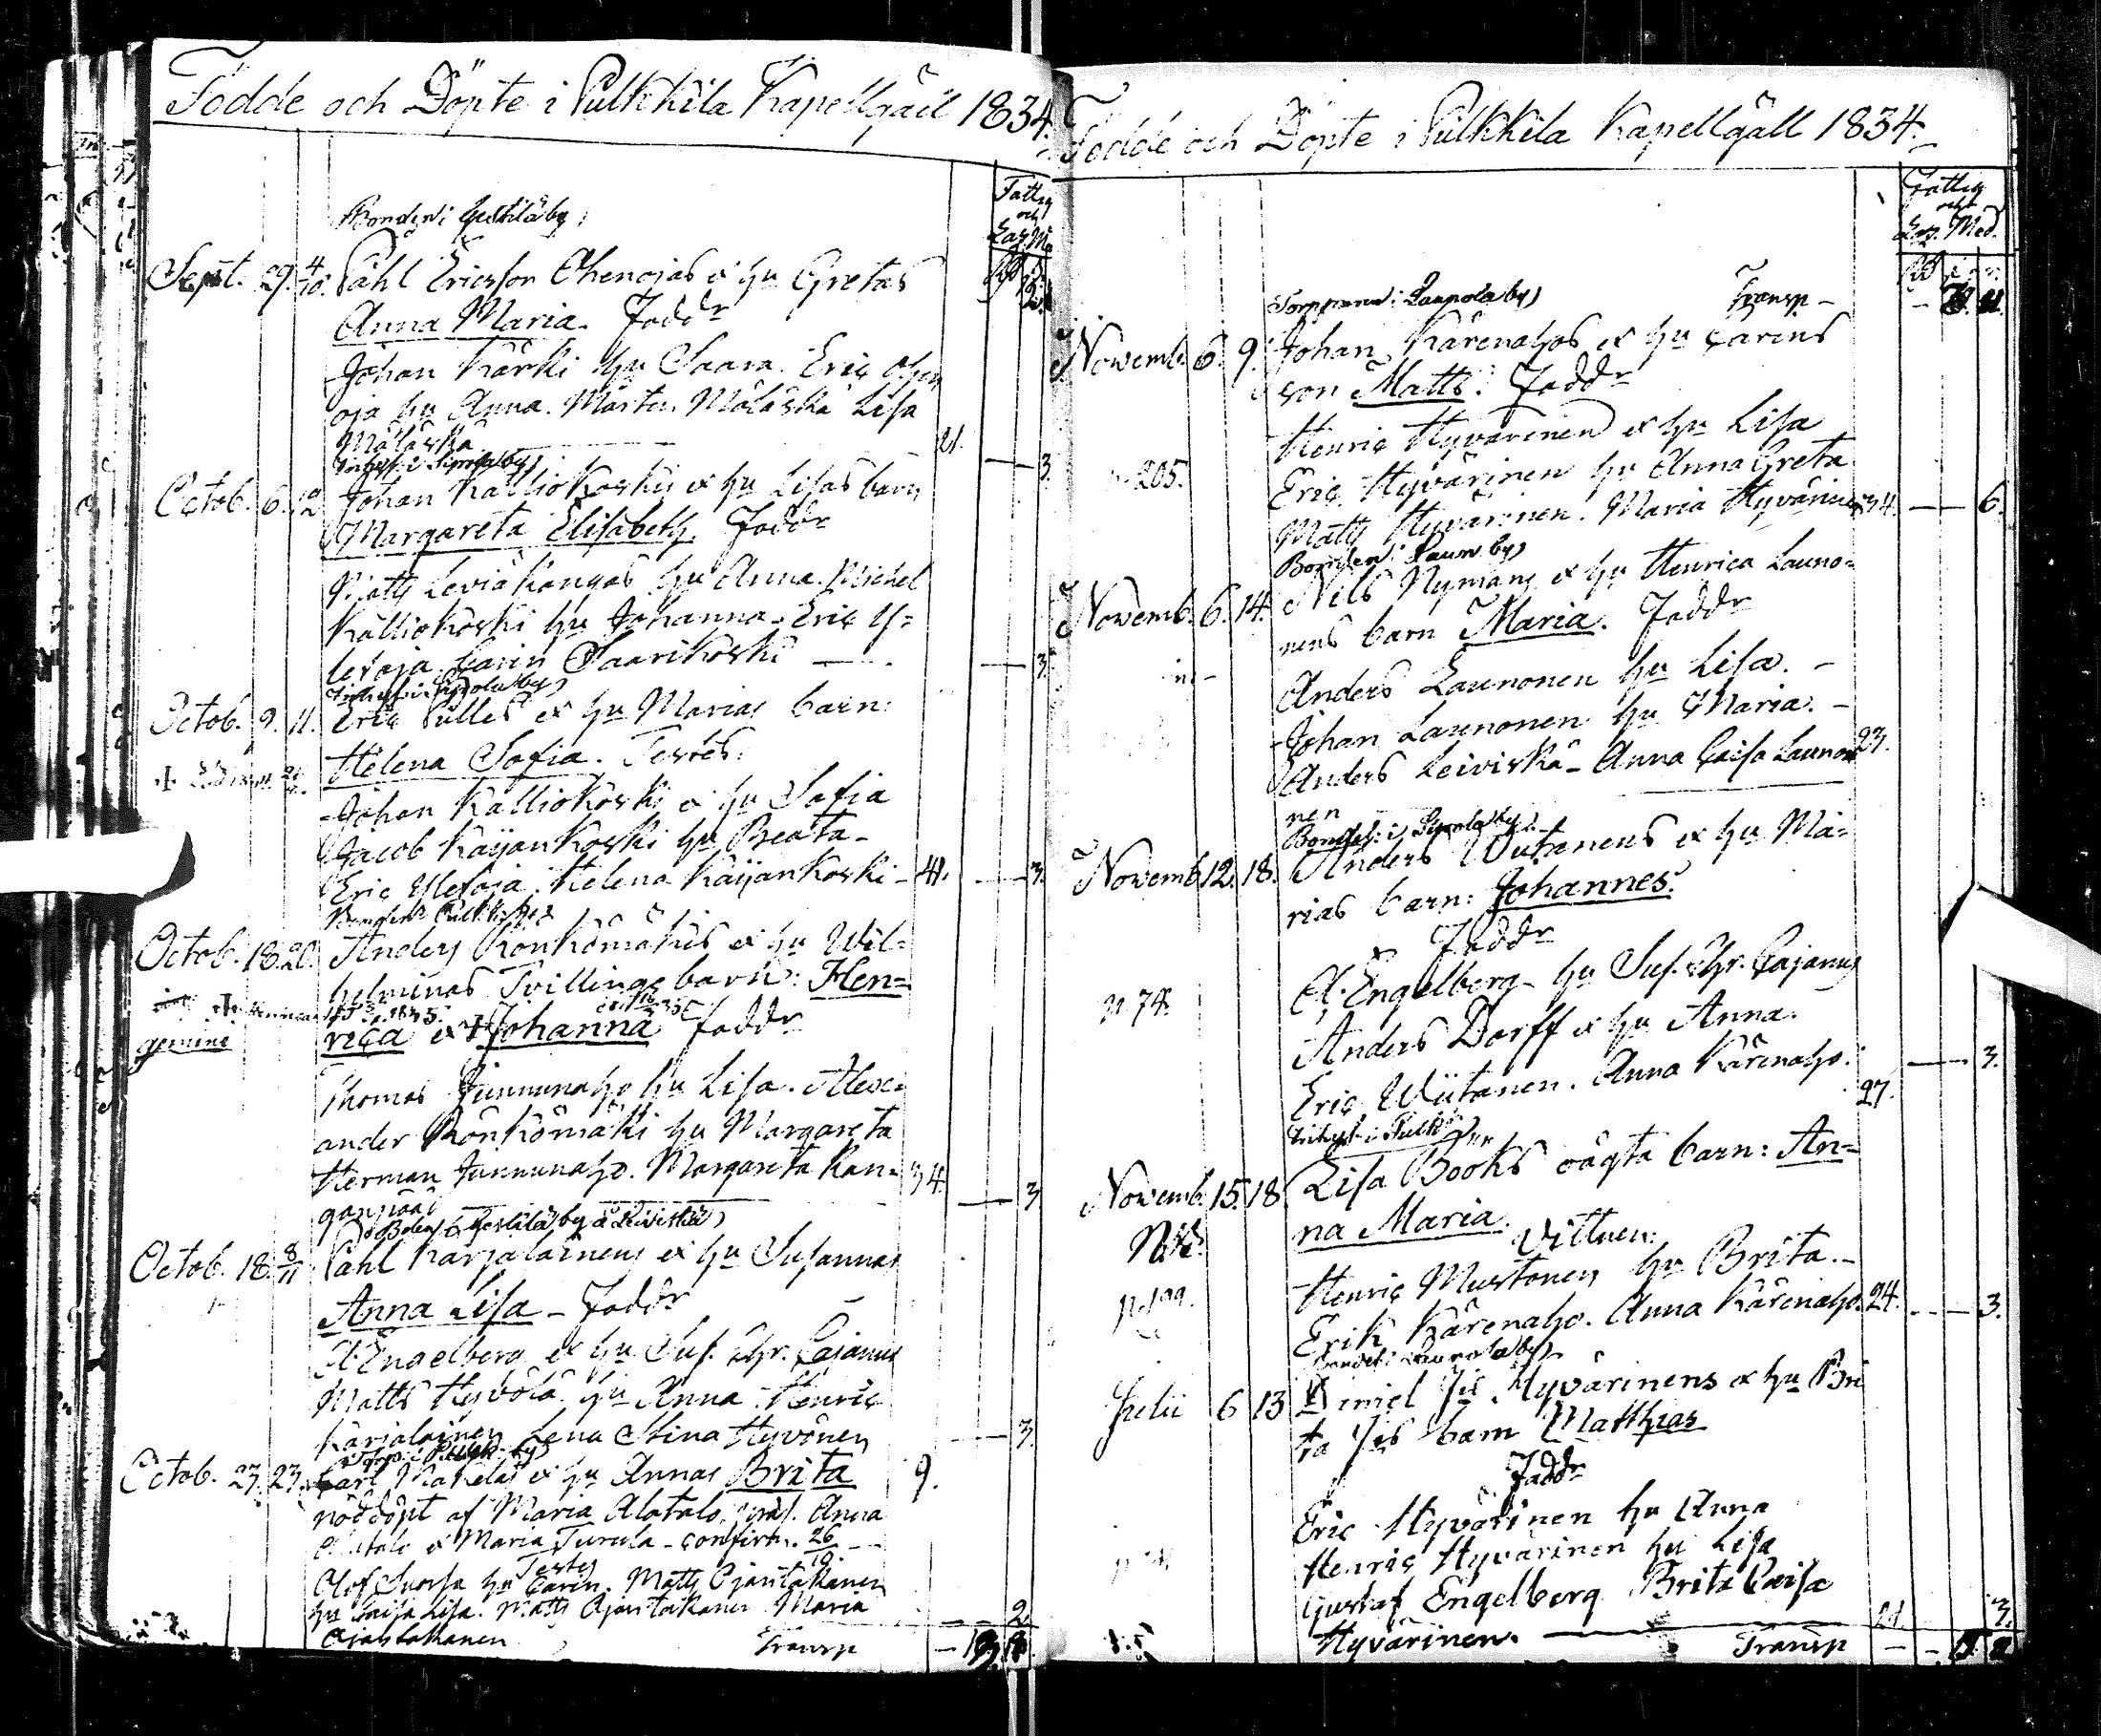 Födde och Döpte i Pulkkila Kapellgäll 1834.
Fattig
och
Bonden i by
Sept. 29. 4/10. Påhl Ericsson Ohenojas & hu Gretas
Anna Maria. Faddr
Johan Kärki hu Saara. Eric Ohen
oja hu Anna. Mårten Mälaskä Lisa
Mälaskä 21. 3.
Inhys. i by
Octob. 6. 12 Johan Kalliokoskis & hu Lisas barn
Margareta Elisabeth. Faddr
Matts Leviäkangas hu Anna. Michel
Kalliokoski hu Johanna. Eric Y=
letoja. Carin Saarikoski — 3.
Octob. 9. 11. Eric Pulles & hu Marias barn:
Helena Sofia. Testes:
Johan Kalliokoski & hu Sofia
Jacob Käyänkoski hu Beata
Eric Yletoja. Helena Käyänkoski 41. 3.
Octob. 18. 20. Anders Könkömäkis & hu Wil=
helminas Tvillingebarn: Hen=
gemini rica & Johanna Faddr
Thomas Junnunaho hu Lisa. Alex=
ander Könkömäki hu Margareta
Herman Junnunaho. Margareta Kan= 34.
3
Octob. 18. 8/11 Påhl Karjalainens & hu Susannas
Anna Lisa - Faddr
A. Engelberg & hu Sus. Chr. Cajanus
Matts Hyvölä hu Anna. Henric
Karjalainen Lena Stina Hyvönen 3.
Octob. 23. 23. Carl Mäkeläs & hu Annas Brita 9.
nöddöpt af Maria Alatalo, Anna
Alatalo & Maria Turula - confirm. 26/10.
Testes
Olof Suorsa hu Carin. Matts Ojantakanen
hu Caisa Lisa. Matts Ojantakanen Maria 2.
Ojantakanen Transp
Födde och Döpte i Pulkkila Kapellgäll 1834.
Fattig
och
Med.
Torpparen i Laupola by) Transp -
Novemb. 6. 9. Johan Kärenahos & hu Carins
son Matts. Faddr
Henric Hyvärinen & hu Lisa
205. Eric Hyvärinen hu Anna Greta
Matts Hyvärinen. Maria Hyvärinen 34. 6.
Bonden i by)
Novemb. 6. 14. Nils Nymans & hu Henrica Launo=
nens barn Maria. Faddr
Anders Launonen hu Lisa. -
Johan Launonen hu Maria. -
Anders Leiviskä - Anna Caisa Launo 23.
nen
Novemb. 12. 18. Anders Wiitanens & hu Ma=
rias barn: Johannes.
Faddr
A. Engelberg - hu Sus. Chr. Cajanus
n. 74. Anders Dorff & hu Anna.
Eric Wiitanen. Anna Kärenaho. 27. 3.
Novemb. 15. 18 Lisa Books oägta barn: An=
na Maria.
Vittnen:
Henric Mustonen hu Brita. -
Erik Kärenaho. Anna Kärenaho. 24. 3.
Julii 6 13 Daniel Hyvärinens & hu Bri
ta barn Matthias
Faddr
Eric Hyvärinen hu Anna
Henric Hyvärinen hu Lisa
Gustaf Engelberg Brita Caisa
Hyvärinen. 21. 3.
Transp